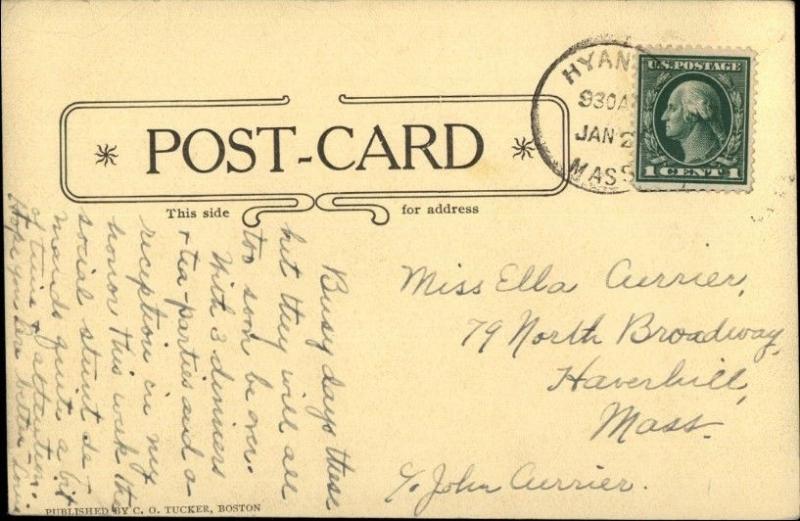 HYAN
930A
JAN 2
MASS
U.S. POSTAGE
1 CENT 1
POST-CARD
This side for address
Busy days these
but they will all
too soon be over.
With 3 dinners
+ tea-parties and a
reception in my
honor this week the
social stunt de-
mands quite a bit
of time + attention.
Hope you are better
Miss Ella Currier,
79 North Broadway,
Haverhill,
Mass.
c/o John Currier.
PUBLISHED BY C. O. TUCKER, BOSTON